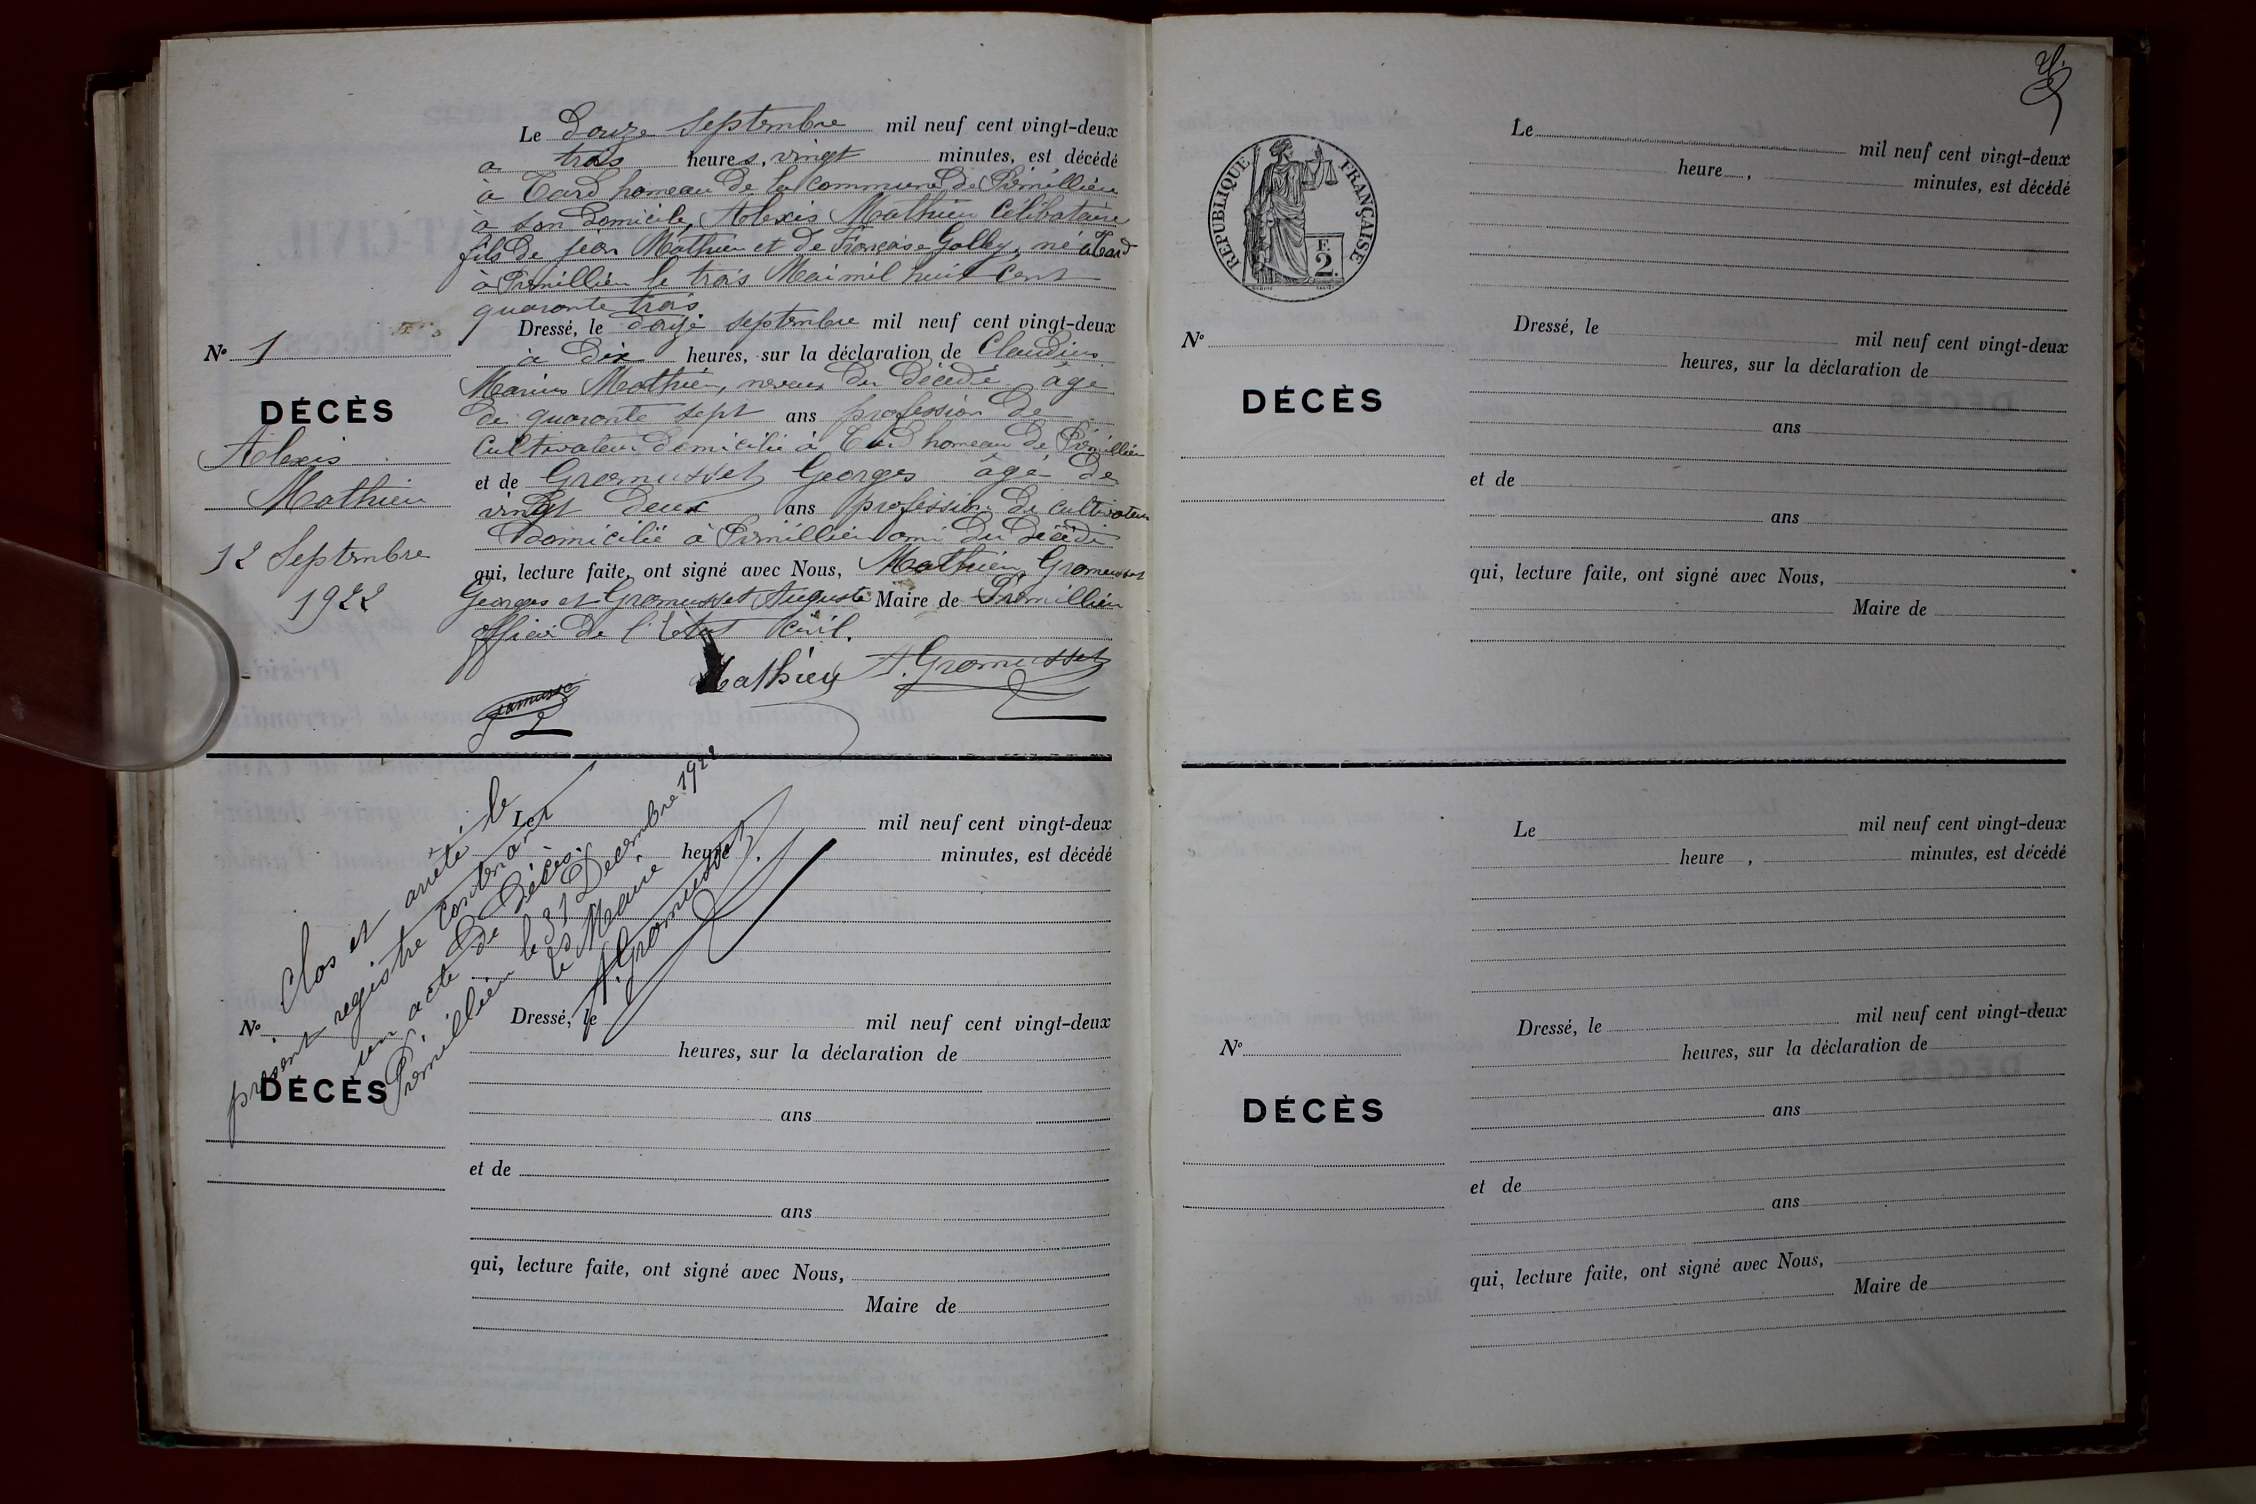 Le douze Septembre mil neuf cent vingt-deux
a trois heures, vingt minutes, est décédé
à Tard homeau de la commune de Prémillieu
à son domicile, Alexis Mathieu Célibataire
fils de jean Mathieu et de Françoise Golley, né à Tard
à Prémillieu le trois Mai mil huit cent
quaronte trois
Dressé, le douze septembre mil neuf cent vingt-deux
à dix heures, sur la déclaration de Claudius
Marius Mathieu, neveu du décédé âgé
de quaronte sept ans profession de
Cultivateur domicilié à Tard homeau de Prémillieu
et de Gromusset Georges âgé de
vingt deux ans profession de cultivateur
Domicilié à Prémillieu ami du décédé
qui, lecture faite, ont signé avec Nous, Mathieu, Gromusset
Georges et Gromusset Auguste Maire de Prémillieu
officier de l'état civil.
Mathieu A. Gromusset
Gromusset
N° 1
DÉCÈS
Alexis
Mathieu
12 Septembre
1922
Clos et arrêté le
présent registre contenant
un acte de Décès.
Prémillieu le 31 Décembre 1922
le Maire
A. Gromusset
Le mil neuf cent vingt-deux
heure , minutes, est décédé
Dressé, le mil neuf cent vingt-deux
heures, sur la déclaration de
ans
et de
ans
qui, lecture faite, ont signé avec Nous,
Maire de
N°
DÉCÈS
RÉPUBLIQUE FRANÇAISE
F.
2.
Le mil neuf cent vingt-deux
heure , minutes, est décédé
Dressé, le mil neuf cent vingt-deux
heures, sur la déclaration de
ans
et de
ans
qui, lecture faite, ont signé avec Nous,
Maire de
N°
DÉCÈS
Le mil neuf cent vingt-deux
heure , minutes, est décédé
Dressé, le mil neuf cent vingt-deux
heures, sur la déclaration de
ans
et de
ans
qui, lecture faite, ont signé avec Nous,
Maire de
N°
DÉCÈS